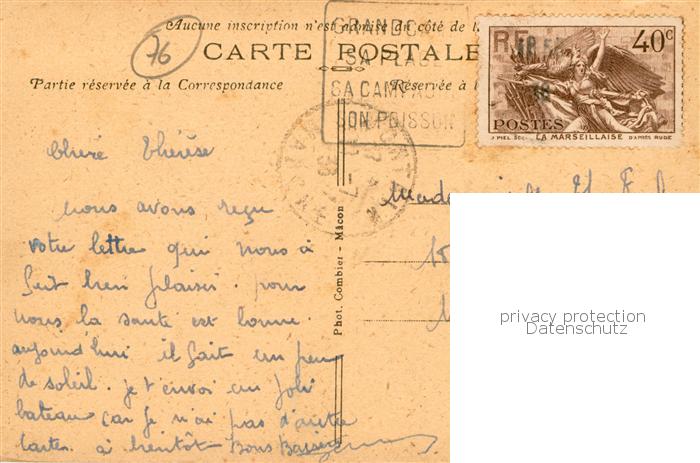 Aucune inscription n'est admise du côté de l
76
CARTE POSTALE
Partie réservée à la Correspondance
Réservée à l
GRAND C
SA PLAG
SA CAMPAG
SON POISSON
RF
40c
POSTES
J. PIEL SC. LA MARSEILLAISE D'APRÈS RUDE
Phot. Combier - Mâcon
Chère Thérèse
nous avons reçu
votre lettre qui nous à
fait bien plaisir. pour
nous la santé est bonne.
aujourd'hui il fait un peu
de soleil. je t'envoi un joli
bateau car je n'ai pas d'autre
cartes. à bientôt Bons Baisers
privacy protection
Datenschutz